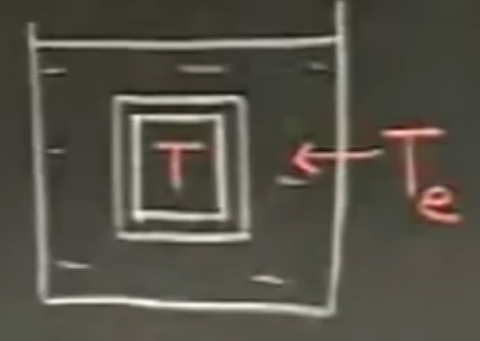 T
T_e